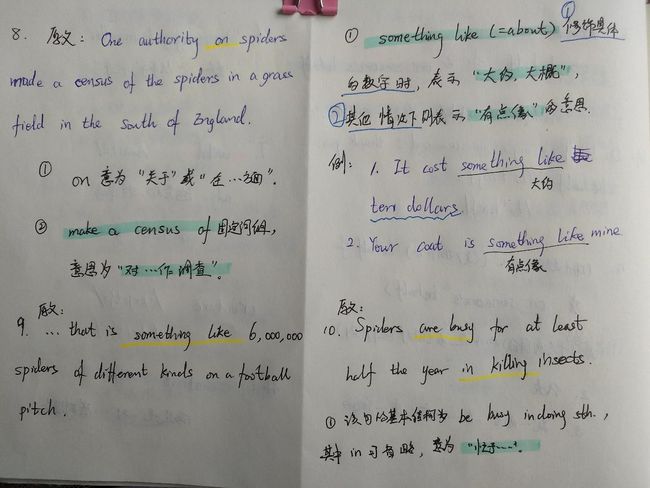 8. 原文: One authority on spiders
made a census of the spiders in a grass
field in the south of England.
① on 意为“关于”或“在…方面”.
② make a census of 固定词组,
意思为“对…作调查”.
原文:
9. … that is something like 6,000,000
spiders of different kinds on a football
pitch.
① something like (=about) ①修饰具体
的数字时, 表示“大约, 大概”,
②其他情况下则表示“有点像”的意思.
例: 1. It cost something like
大约
ten dollars.
2. Your coat is something like mine
有点像
原文:
10. Spiders are busy for at least
half the year in killing insects.
① 该句的基本结构为 be busy in doing sth.,
其中 in 可省略, 意为“忙于……”.